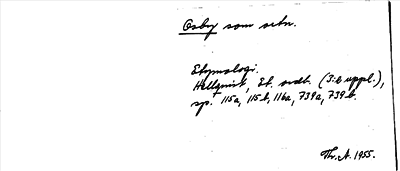 Osby som ortn.
Etymologi.
Hellquist, Et. ordb. (3:e uppl.),
sp. 115a, 115b, 116a, 739a, 739b.
Th. A. 1955.